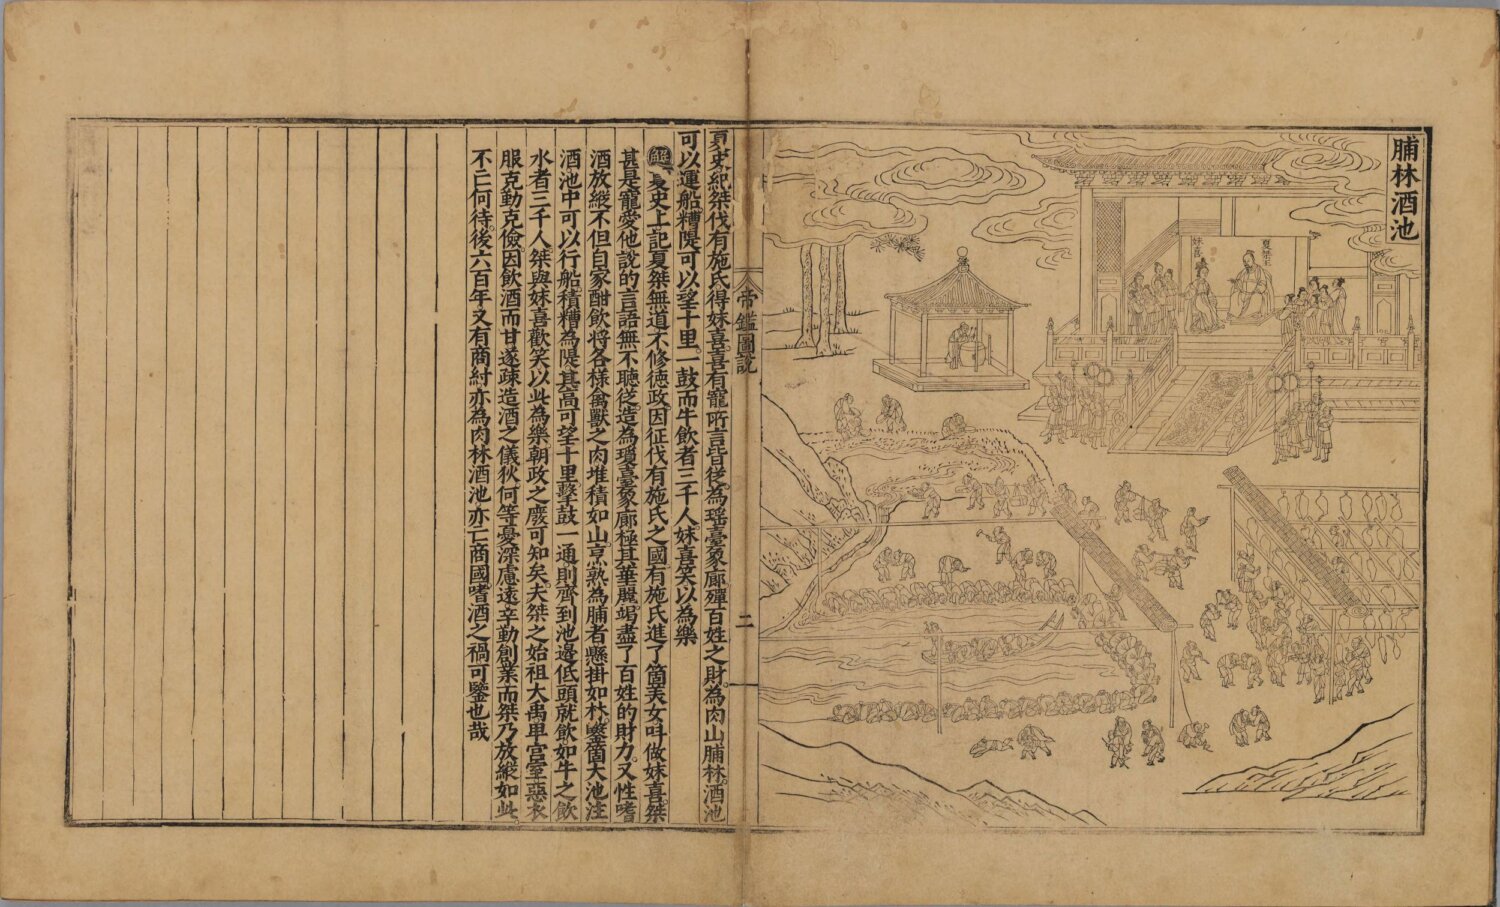 脯林酒池
夏桀王
妹喜
帝鑑圖說
二
夏史紀桀伐有施氏得妹喜喜有寵所言皆從為瑶臺象廊殫百姓之財為肉山脯林酒池
可以運船糟隄可以望十里一鼓而牛飲者三千人妹喜笑以為樂
解夏史上記夏桀無道不修德政因征伐有施氏之國有施氏進了箇美女呌做妹喜桀
甚是寵愛他說的言語無不聽從造為瓊臺象廊極其華麗竭盡了百姓的財力又性嗜
酒放縱不但自家酣飲將各樣禽獸之肉堆積如山烹熟為脯者懸掛如林鑿箇大池注
酒池中可以行船積糟為隄其高可望十里擊鼓一通則齊到池邊低頭就飲如牛之飲
水者三千人桀與妹喜歡笑以此為樂朝政之廢可知矣夫桀之始祖大禹卑宮室惡衣
服克勤克儉因飲酒而甘遂疎造酒之儀狄何等憂深慮遠辛勤創業而桀乃放縱如此
不亡何待後六百年又有商紂亦為肉林酒池亦亡商國嗜酒之禍可鑒也哉